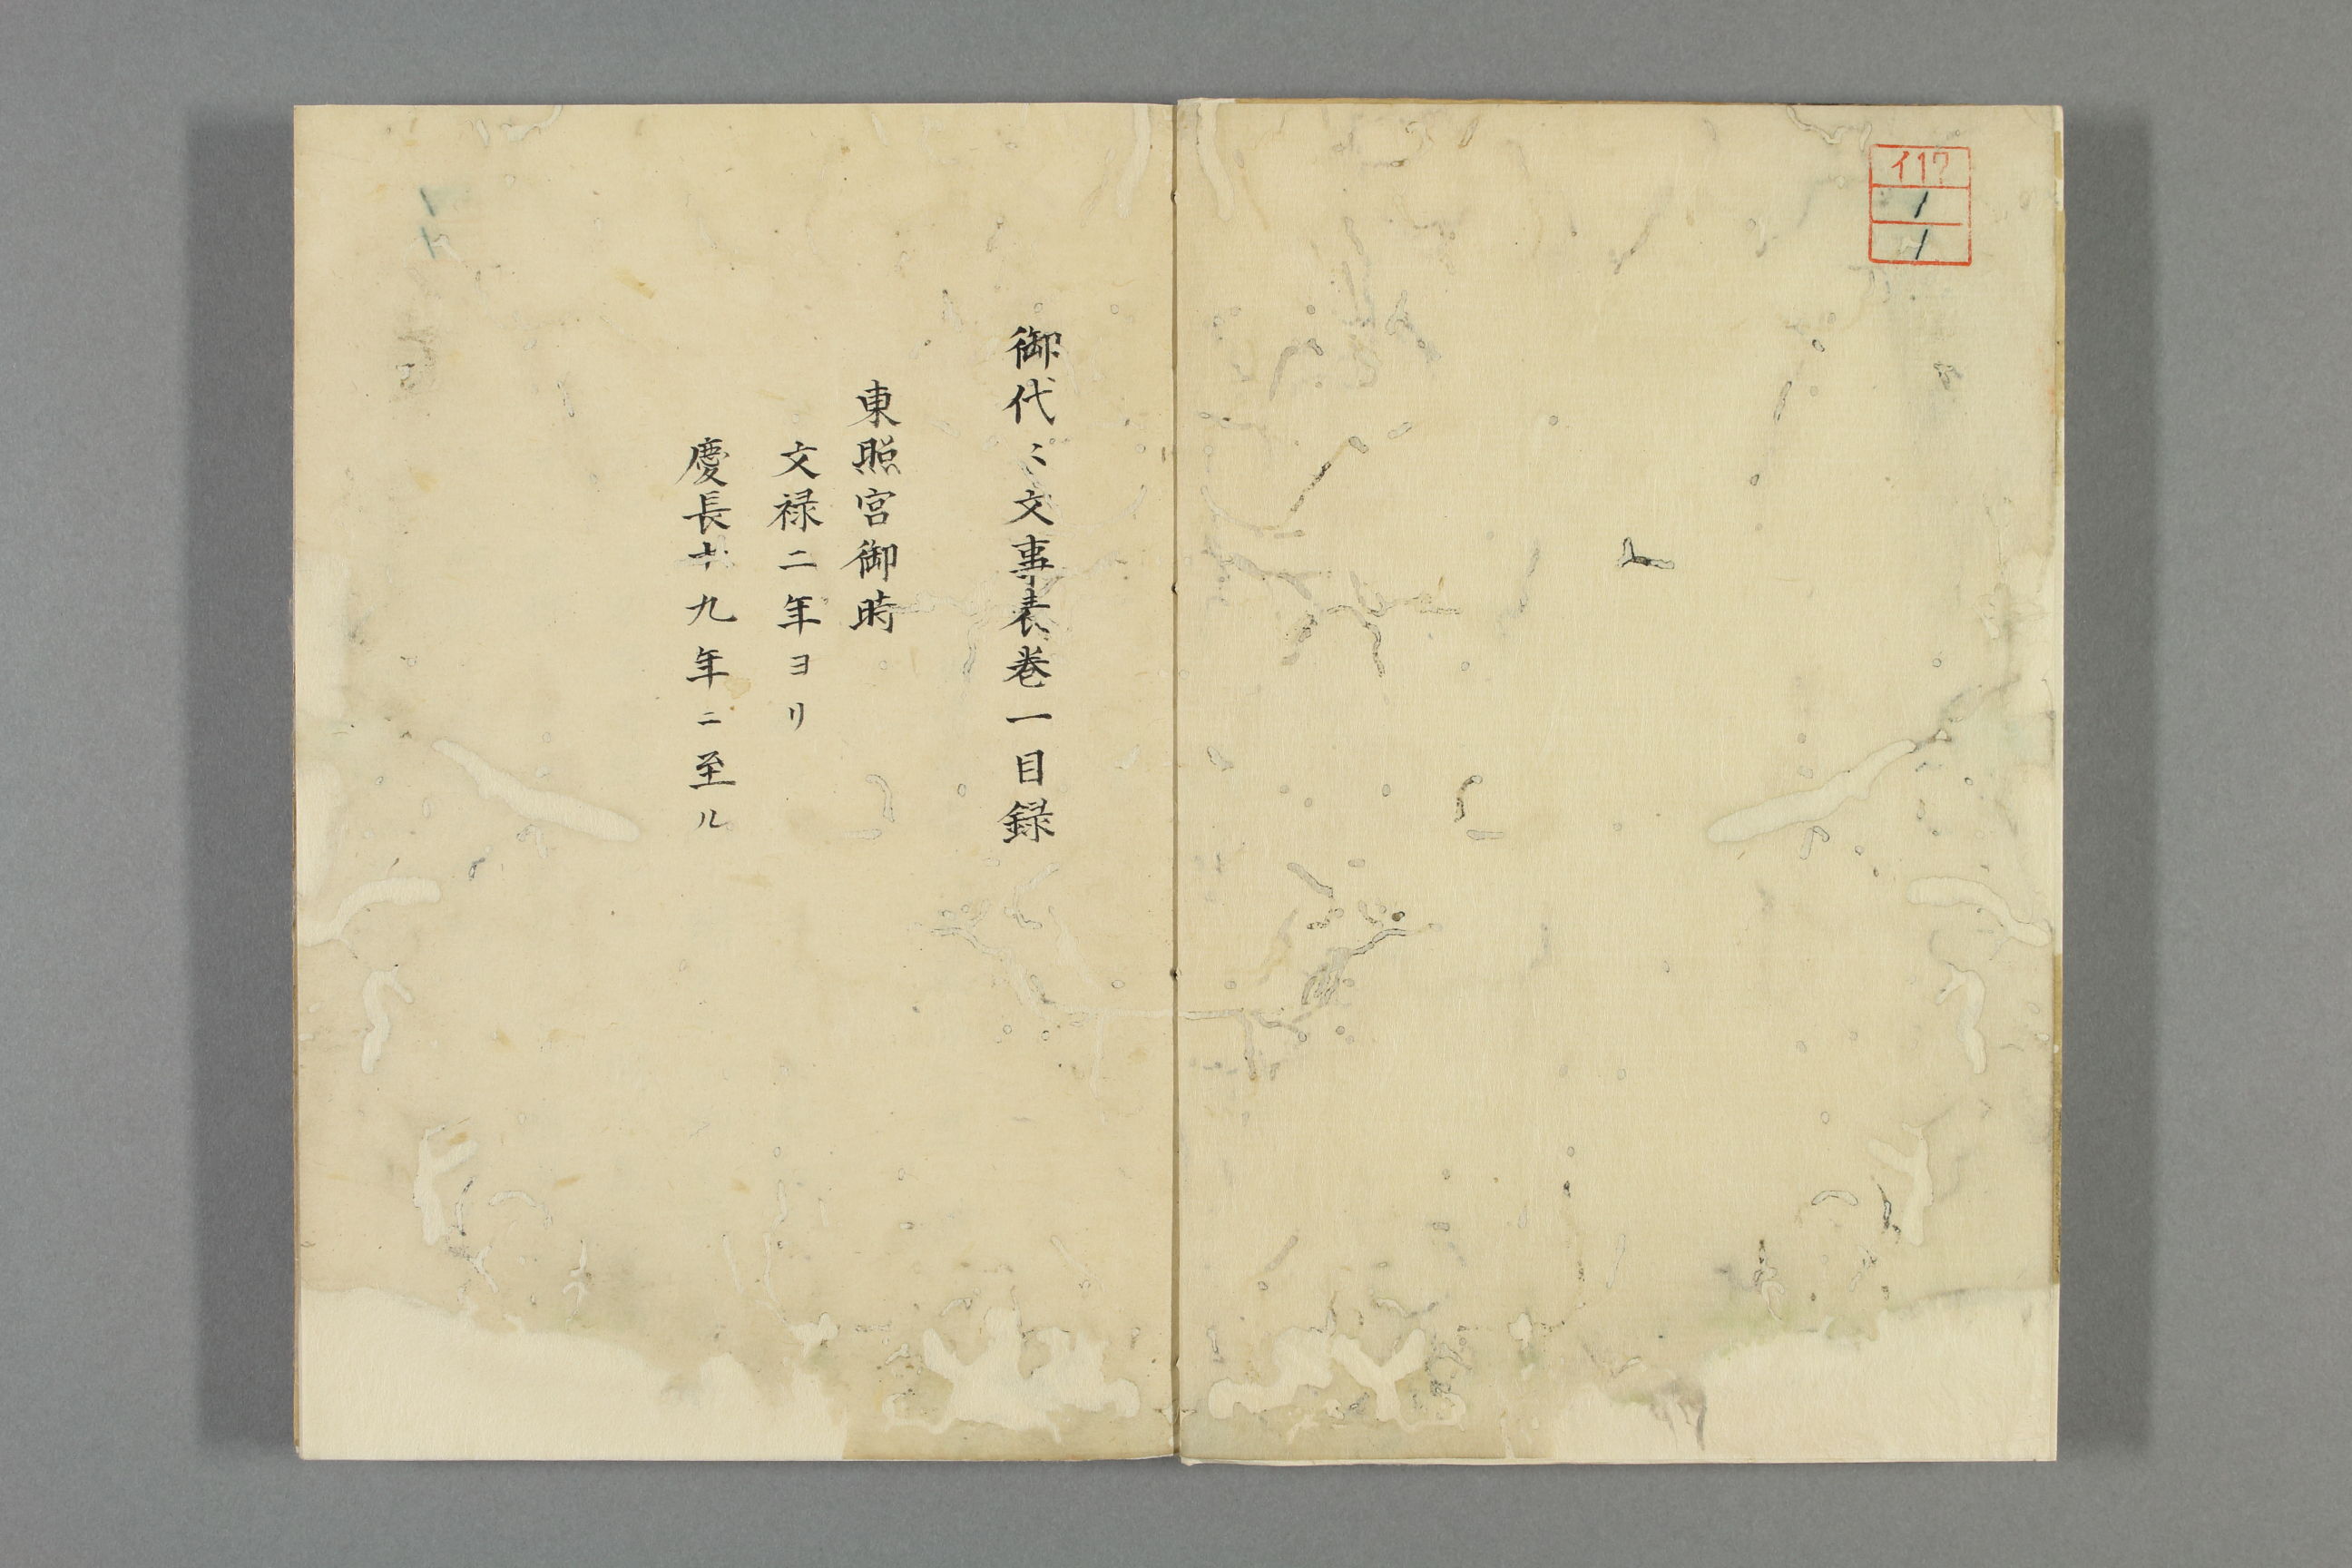 イ17
1
1
御代〻文事表巻一目録
東照宮御時
文禄二年ヨリ
慶長十九年ニ至ル